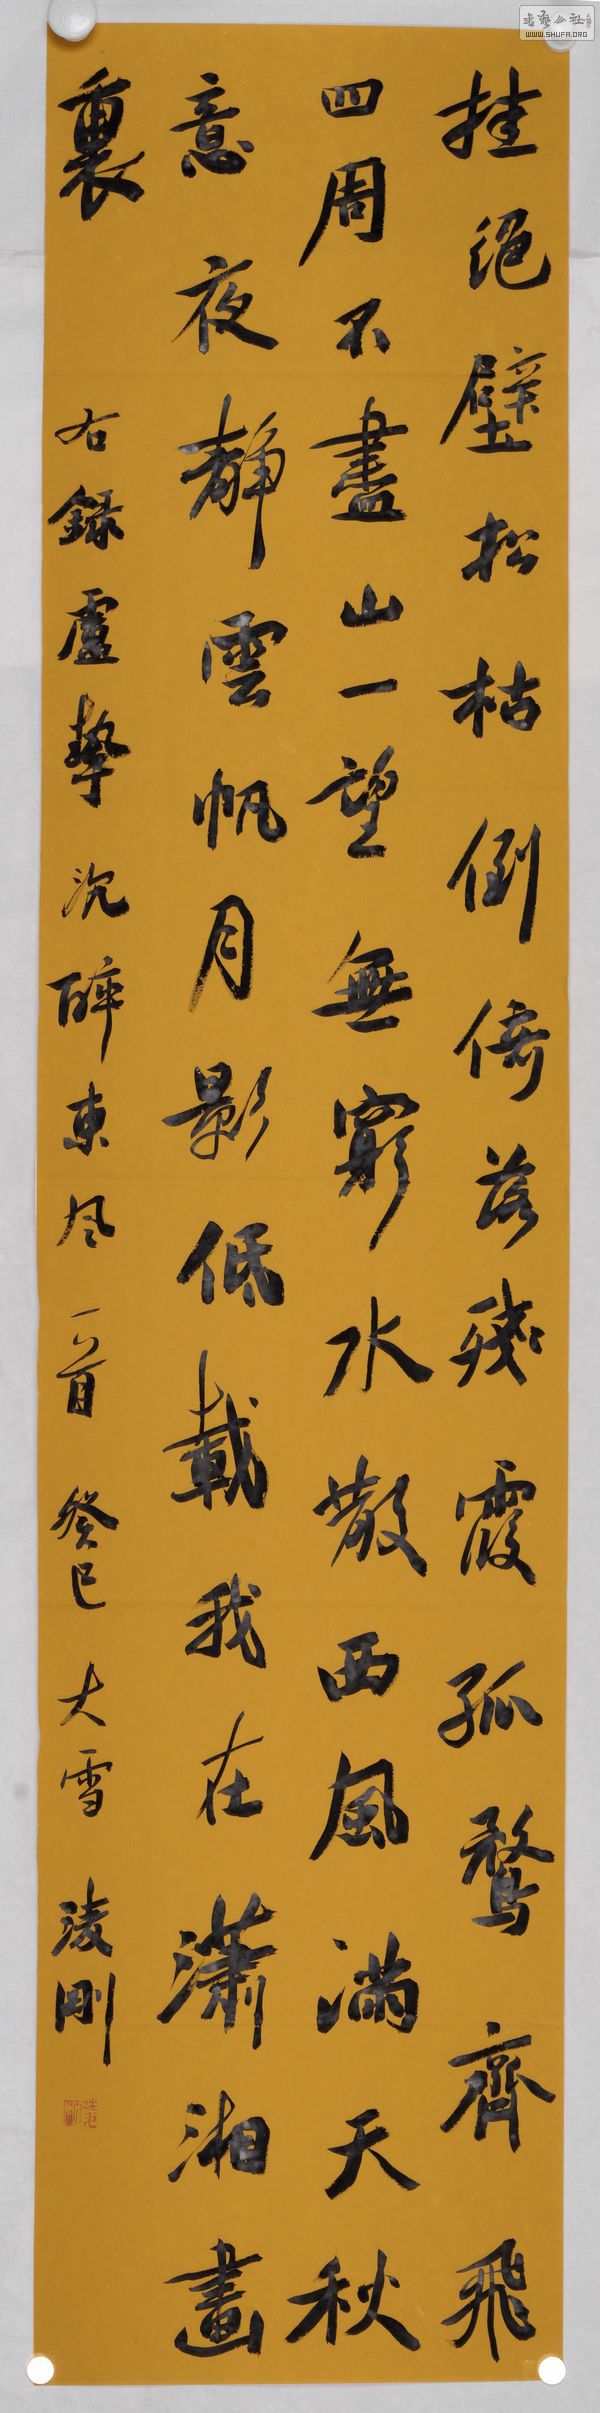 挂絕壁松枯倒倚落殘霞孤鶩齊飛
四周不盡山一望無窮水散西風滿天秋
意夜靜雲帆月影低載我在瀟湘畫
裏 右錄盧摯沉醉東風一首 癸巳大雪 淩剛
WWW.SHUFA.ORG